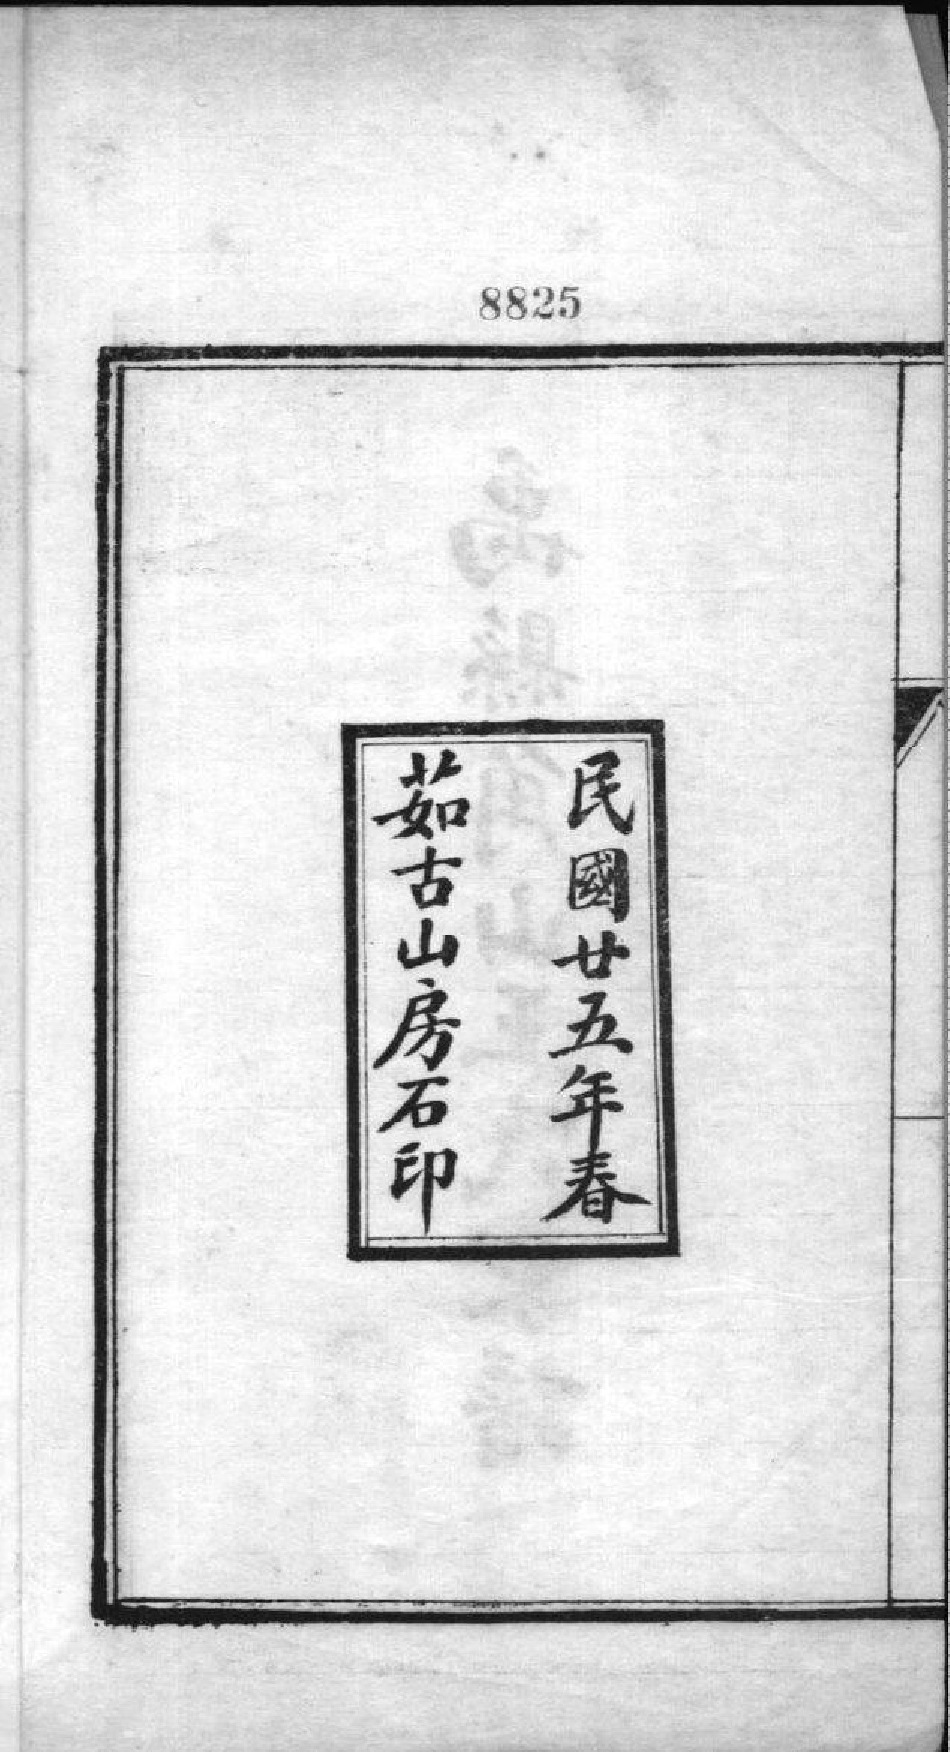 8825
民國廿五年春
茹古山房石印